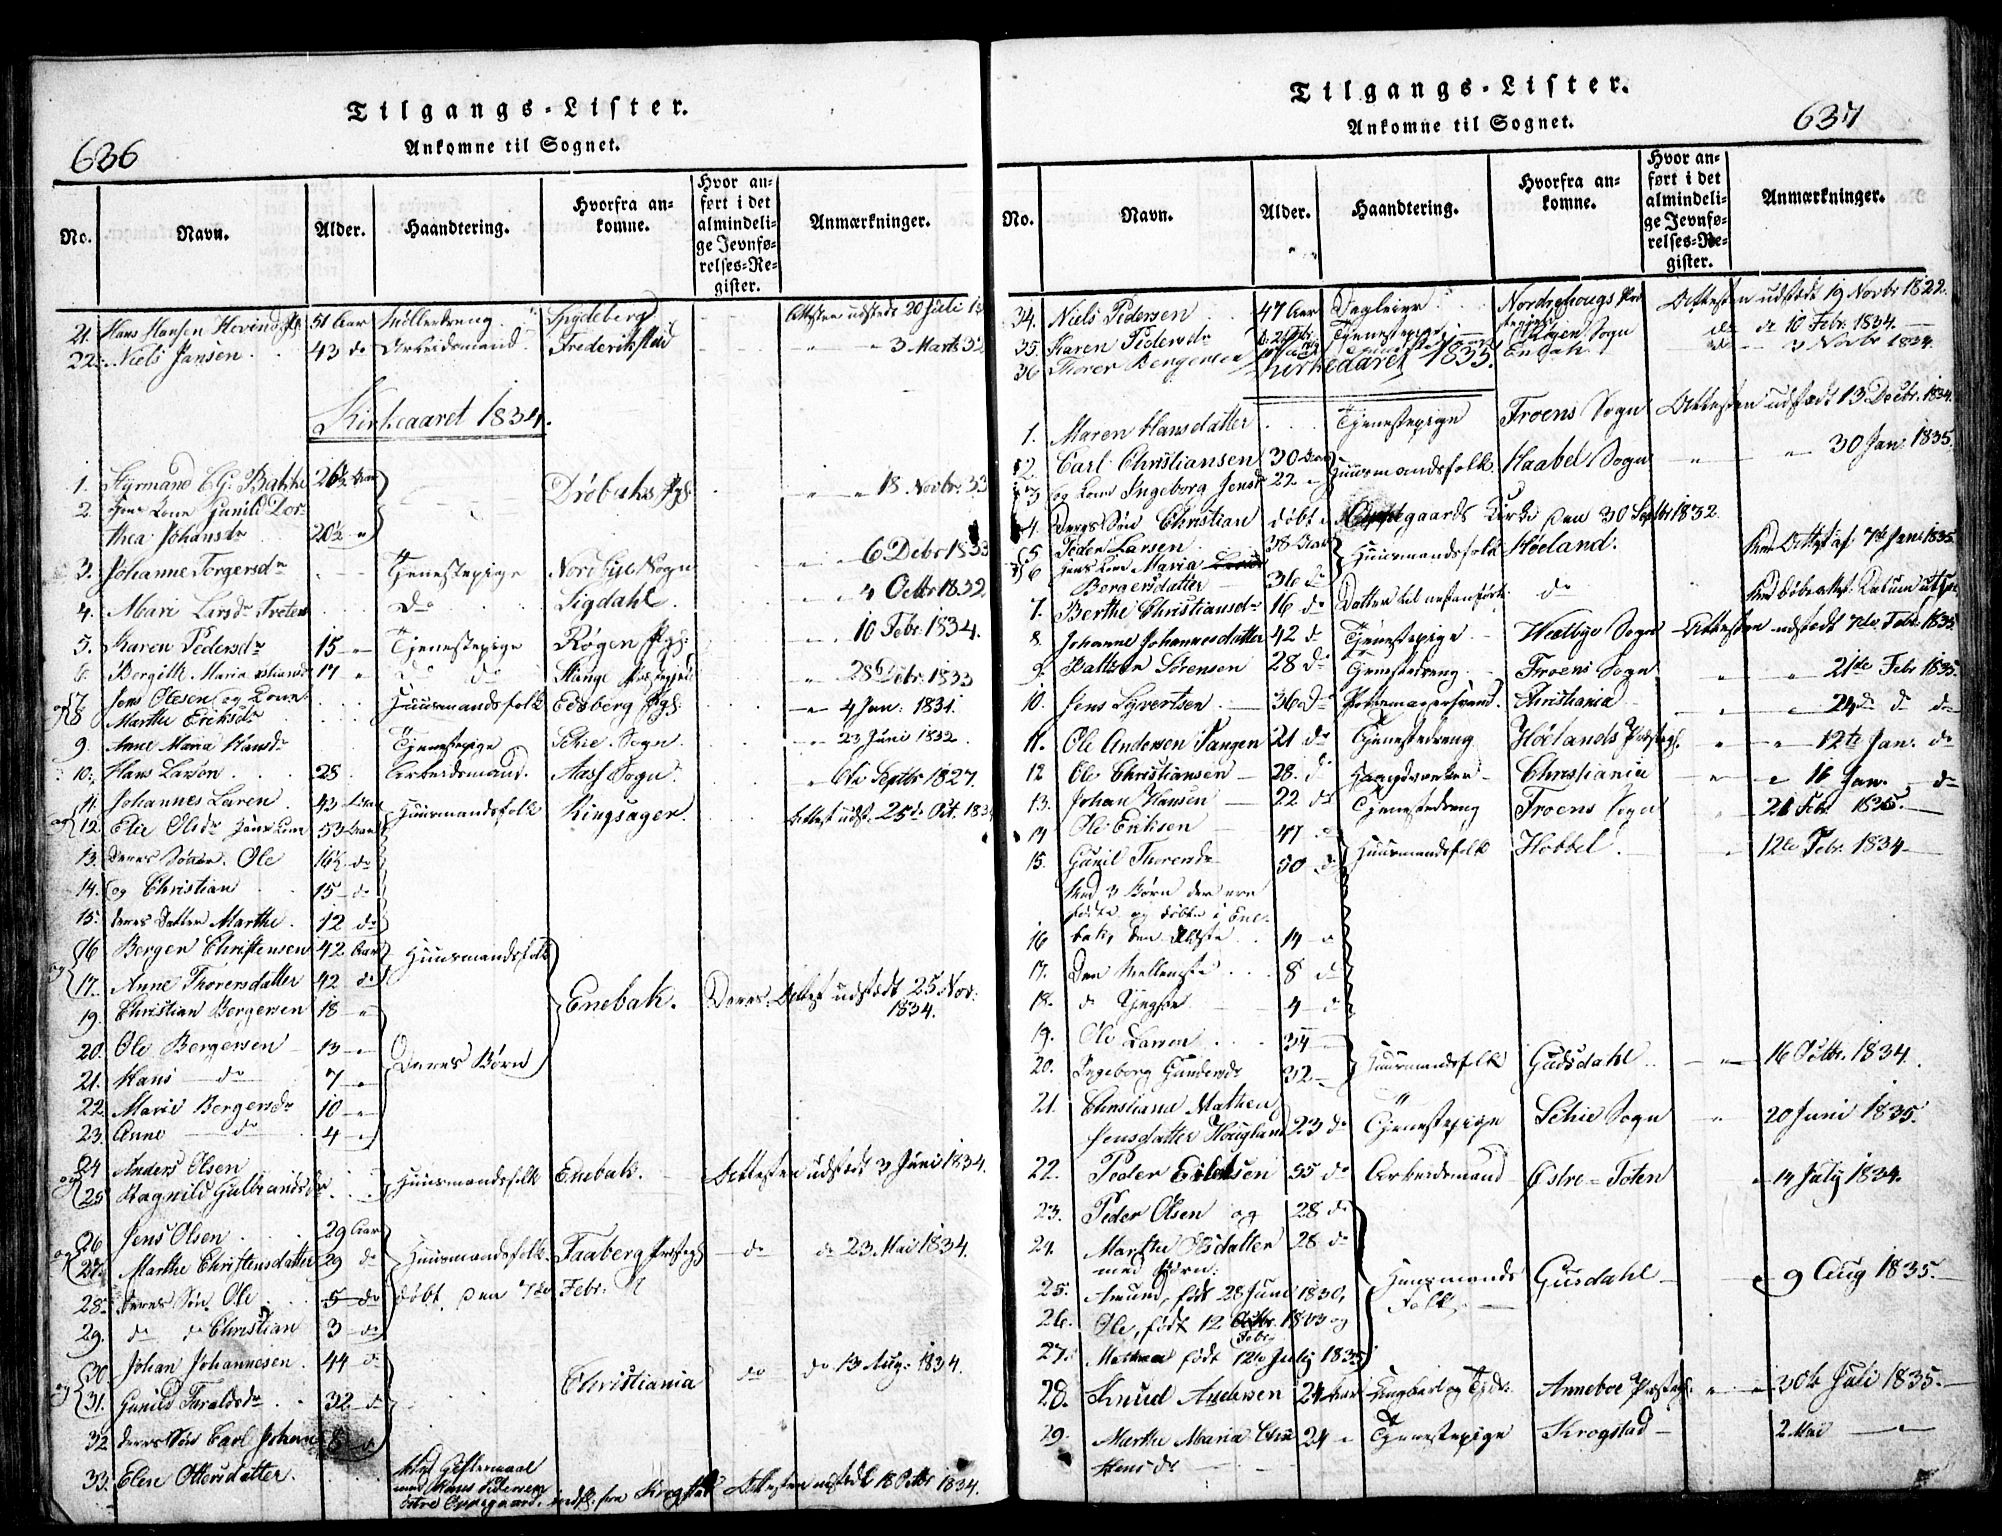 636
Tilgangs-Lister.
Ankomne til Sognet.
No. Navn. Alder. Haandtering. Hvorfra ankomne. Hvor anført i det almindelige Jevnførelses-Register. Anmærkninger.
21. Hans Hansen 51 Aar Spydeberg Attesten udstedt 20 Juli
22. Niels Jansen 43 do Arbeidsmand Frederikstad 3 Marts 32
Kirkeaaret 1834.
1. Styrmand 26½ Aar Drøbaks Pgj. 18 Novbr. 33
2. hans Kone Gunild Dorthea Johansdr 20½
3. Johanne Torgersdr Tjenestepige Nordbye Sogn 6 Debr 1833
4. Mari Larsdr do Sigdahl 4 Octbr 1832
5. Karen Pedersdr 15 Tjenestepige Røgen Pgj. 10 Febr. 1834.
6. Bergith Maria 17 do do Stange 28 Debr. 1833
7 Jens Olesen og Kone
og 8 Marthe Ericksdr Huusmandsfolk Edsberg Pgj. 4 Jan: 1831.
9. Anne Maria Hansdr Tjenestepige Schie Sogn 23 Juni 1832
10. Hans Larsen 28 Arbeidsmand Aass Sogn 6te Septbr 1827.
11. Johannes Larsen 43 Aar Huusmandsfolk Ringsager Attest udst. 25de Oct. 183
og 12. Elie Olsdr hans Kone 53 Aar
13. deres Sønner Ole 16½ do
14. og Christian 15 do
15. deres Datter Marthe 12 do
16 Berger Christensen 42 Aar Huusmandsfolk
og 17. Anne Thorersdatter 42 do Enebak. Deres Attest udstædt 25 Nov: 1834.
19. Christian Bergersen 18
20. Ole Bergersen 13 Deres Børn
21. Hans do 7
22. Marie Bergersdr 10
23. Anne do 4
24 Anders Olsen
og 25 Ragnild Gulbrandsdr Huusmandsfolk Enebak. Attesten udstædt 3 Juni 1834.
26 Jens Olsen 29 Aar
og 27. Marthe Christensdatter 29 do Huusmandsfolk Faaberg Præstegj do do 23 Mai 1834.
28. deres Søn Ole 5 do døbt den 7de Febr.
29. do do Christian 3 do
30. Johan Johannesen 44 do
og 31. Gunild Taraldsdr 32 do Christiania do do 13 Aug: 1834.
32 deres Søn Carl Johan 8 do
33. Elen Ottersdatter. ved Giftermaal med Hans Pedersen østre Oppegaard, indfl. fra Krogstad Attesten udstedt 18 Octbr 1834.
637
Tilgangs-Lister.
Ankomne til Sognet.
No. Navn. Alder. Haandtering. Hvorfra ankomne. Hvor anført i det almindelige Jevnførelses-Register. Anmærkninger.
34. Niels Pedersen 47 Aar Dagleier Nordrehougs Attesten udstædt 19 Novbr 1822.
35. Karen Pedersdr Tjenestepige Røgen Sogn do do 10 Febr. 1834.
36 Thorer Bergersen Enebak do 3 Novbr 1834
Kirkeaaret 1835.
1. Maren Hansdatter Tjenestepige Froens Sogn Attesten udstædt 13 Decbr. 1834.
2. Carl Christiansen 30 Aar Huusmandsfolk Haabel Sogn 30 Jan. 1835.
3 og Kone Ingeborg Jensdr 22
4. Deres Søn Christian døbt i Oppegaards Kirke den 30 Septbr 1832.
5 Peder Larsen 38 Aar Huusmandsfolk Høland. ved Attest af 7de Jan 1835.
6 hans Kone Maria Bergersdatter 36 do
7. Berthe Christiansdr 16 do Datter til do
8. Johanne Johannesdatter 42 do Tjenestepige Westbye Sogn Attesten udstædt 7de Febr. 1835.
9. Sørensen 28 do Tjenestedreng Froens Sogn 21de Febr 1835.
10. Jens Syvertsen 36 do Christiania 24de do do
11. Ole Andersen Tangen 21 do Tjenestedreng Hølands Præstegj. 12te Jan. do
12 Ole Christiansen 28. do Christiania 11 Jan. do
13. Johan Hansen 22 do Tjenestedreng Froens Sogn 21 Febr. 1835.
14 Ole Eriksen 47
15. Gunil Thorersdr 50 do Huusmandsfolk Hobbel 12te Febr. 1834
Med 3 Børn der ere fødte og døbte i Enebak,
16 den Ældste 14
17. Den Mellemste 8 do
18. do Yngste 4
19. Ole Larsen 34
20. Ingeborg Gundersdr 32 Huusmandsfolk Guusdahl 16 Octbr. 1834.
21. Christiane Mathea Jensdatter Hougland 23 do Tjenestepige Schie Sogn 20 Juni 1835.
22. Peder 35 do Arbeidsmand Østre-Toten 14 July 1834.
23. Peder Olsen og 28 do
24. Marthe Olsdatter 28 do
med Børn: Huusmands Folk Guusdahl 9 Aug 1835.
25. Amund, født 28 Juni 1830,
26. Ole, født 12 Febr. 1833 og
27. Mathea født 12te July 1835
28. Knud Andersen 24 Aar Anneboe Præstegj. 30te Juli 1835.
29. Marthe Maria Christensdr 24 Tjenestepige Krogstad 2 Mai